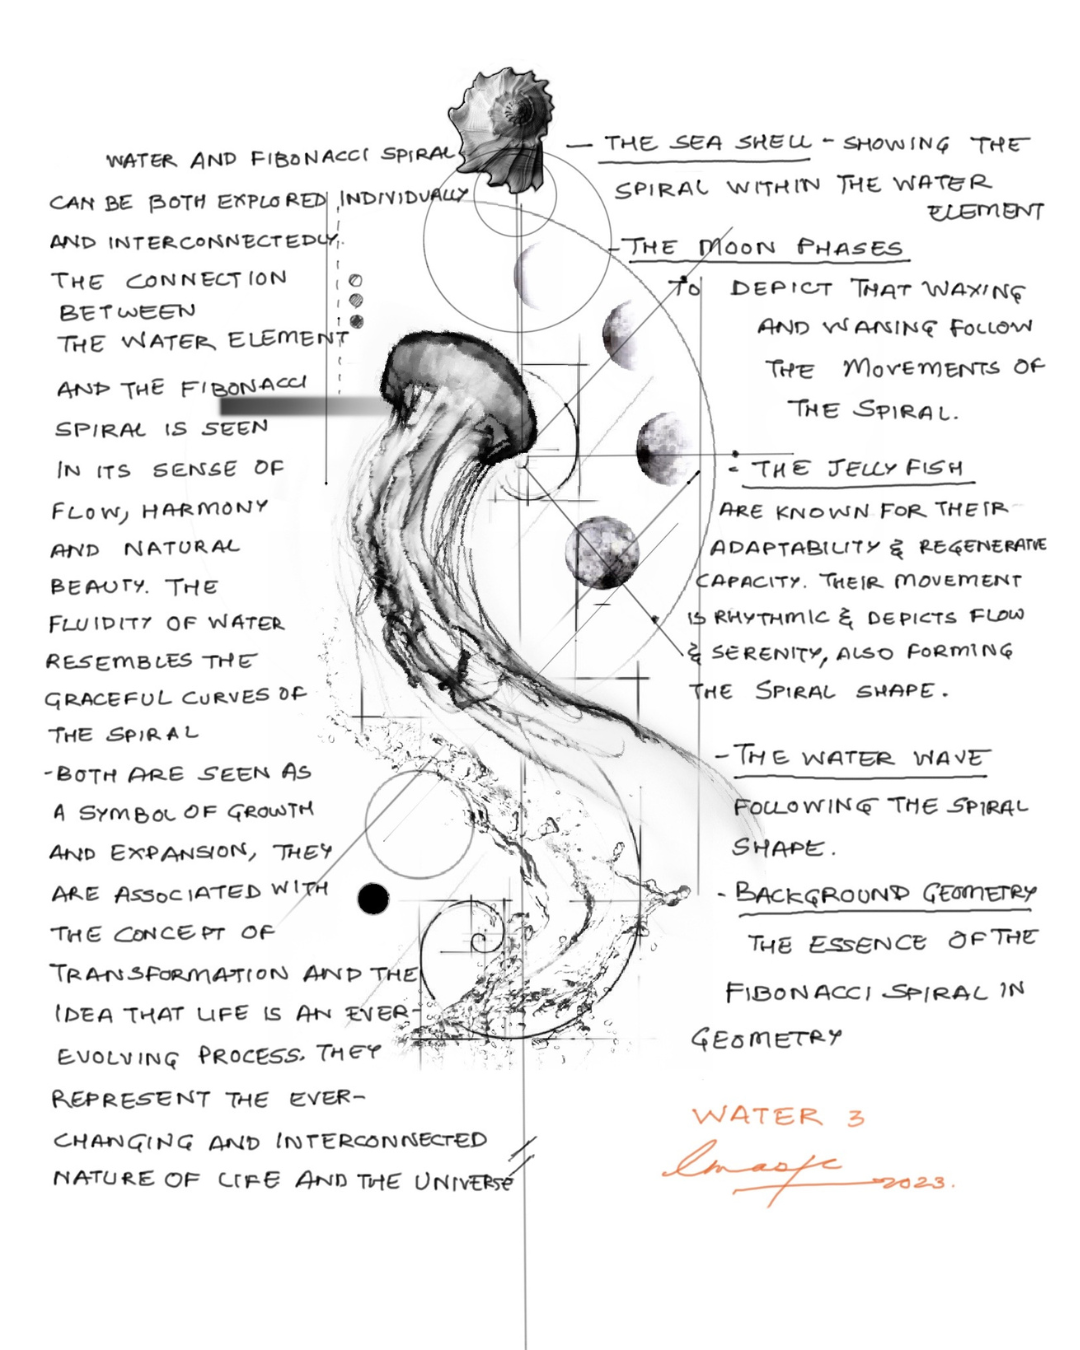 WATER AND FIBONACCI SPIRAL
CAN BE BOTH EXPLORED INDIVIDUALLY
AND INTERCONNECTEDLY.
THE CONNECTION
BETWEEN
THE WATER ELEMENT
AND THE FIBONACCI
SPIRAL IS SEEN
IN ITS SENSE OF
FLOW, HARMONY
AND NATURAL
BEAUTY. THE
FLUIDITY OF WATER
RESEMBLES THE
GRACEFUL CURVES OF
THE SPIRAL
-BOTH ARE SEEN AS
A SYMBOL OF GROWTH
AND EXPANSION, THEY
ARE ASSOCIATED WITH
THE CONCEPT OF
TRANSFORMATION AND THE
IDEA THAT LIFE IS AN EVER-
EVOLVING PROCESS. THEY
REPRESENT THE EVER-
CHANGING AND INTERCONNECTED
NATURE OF LIFE AND THE UNIVERSE
- THE SEA SHELL - SHOWING THE
SPIRAL WITHIN THE WATER
ELEMENT
-THE MOON PHASES
TO DEPICT THAT WAXING
AND WANING FOLLOW
THE MOVEMENTS OF
THE SPIRAL.
- THE JELLY FISH
ARE KNOWN FOR THEIR
ADAPTABILITY & REGENERATIVE
CAPACITY. THEIR MOVEMENT
IS RHYTHMIC & DEPICTS FLOW
& SERENITY, ALSO FORMING
THE SPIRAL SHAPE.
- THE WATER WAVE
FOLLOWING THE SPIRAL
SHAPE.
- BACKGROUND GEOMETRY
THE ESSENCE OF THE
FIBONACCI SPIRAL IN
GEOMETRY
WATER 3
2023.